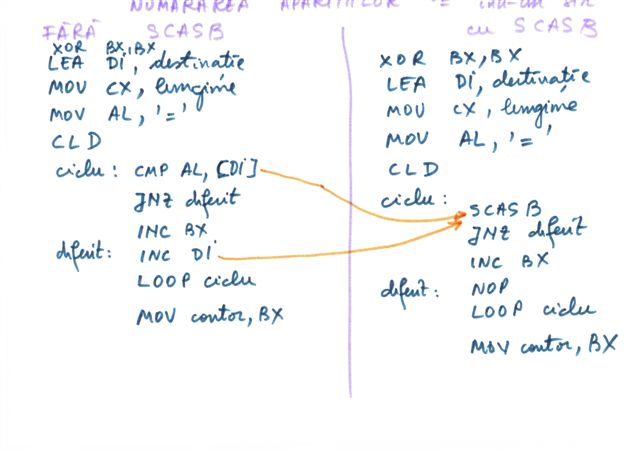 NUMĂRAREA APARIȚIILOR '=' ÎNTR-UN ȘIR
FĂRĂ SCASB
XOR BX,BX
LEA DI, destinație
MOV CX, lungime
MOV AL, '='
CLD
ciclu: CMP AL, [DI]
JNZ diferit
INC BX
diferit: INC DI
LOOP ciclu
MOV contor, BX
cu SCASB
XOR BX, BX
LEA DI, destinație
MOV CX, lungime
MOV AL, '='
CLD
ciclu:
SCASB
JNZ diferit
INC BX
diferit: NOP
LOOP ciclu
MOV contor, BX